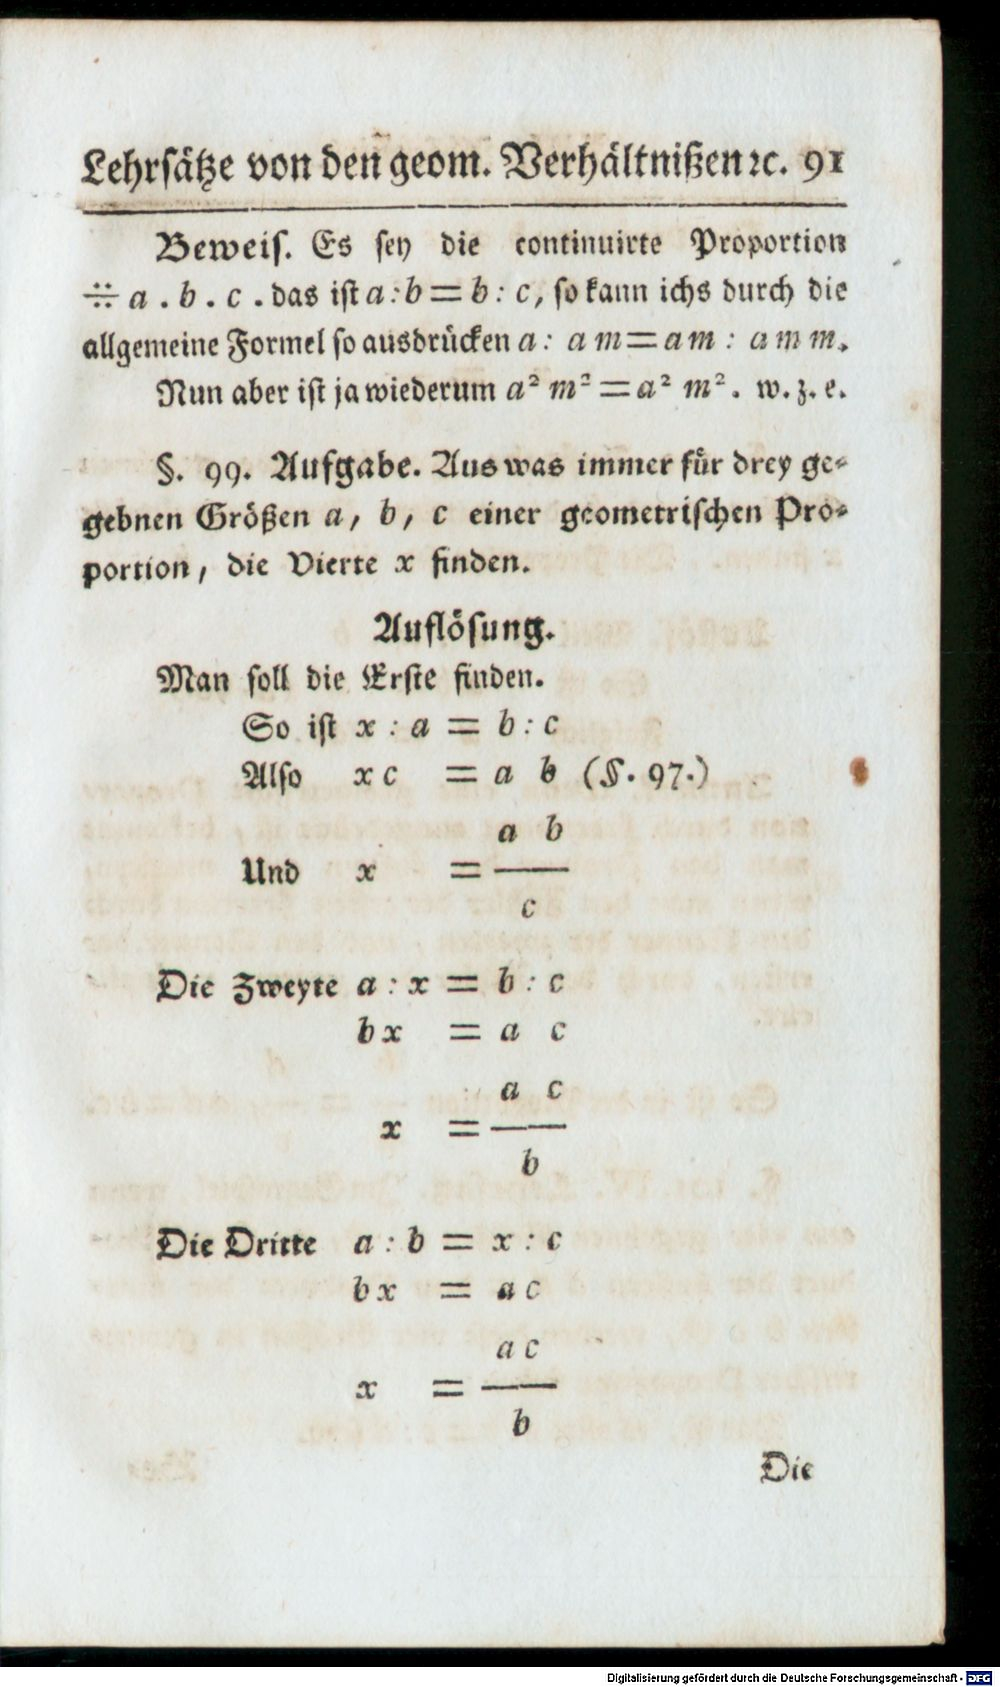 Lehrsätze von den geom. Verhältnißen ꝛc. 91
Beweis. Es sey die continuirte Proportion
∺ a . b . c . das ist a : b = b : c, so kann ichs durch die
allgemeine Formel so ausdrücken a : a m = a m : a m m.
Nun aber ist ja wiederum a² m² = a² m². w. z. e.
§. 99. Aufgabe. Aus was immer für drey ge-
gebnen Größen a, b, c einer geometrischen Pro-
portion, die Vierte x finden.
Auflösung.
Man soll die Erste finden.
So ist x : a = b : c
Also x c = a b (§. 97.)
a b
Und x = —
c
Die Zweyte a : x = b : c
b x = a c
a c
x = —
b
Die Dritte a : b = x : c
b x = a c
a c
x = —
b
Die
Digitalisierung gefördert durch die Deutsche Forschungsgemeinschaft - DFG